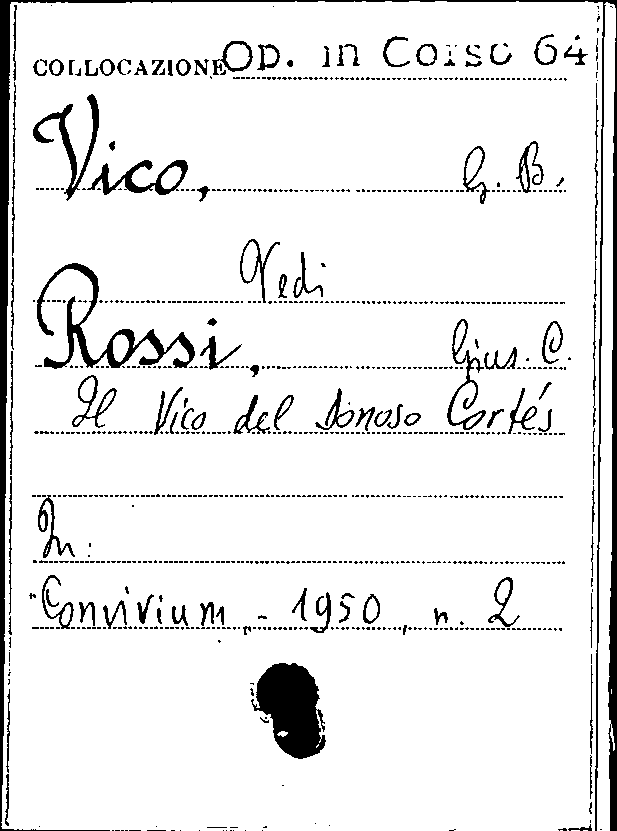 COLLOCAZIONE Op. in Corso 64
Vico, G. B.
Vedi
Rossi, Gius. C.
Il Vico del Donoso Cortés
In:
"Convivium" - 1950, n. 2